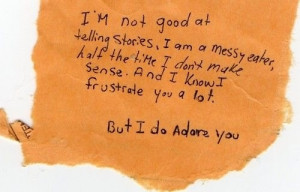 I'M not good at
telling stories, I am a messy eater,
half the time I don't make
sense. And I know I
frustrate you a lot.
But I do Adore you